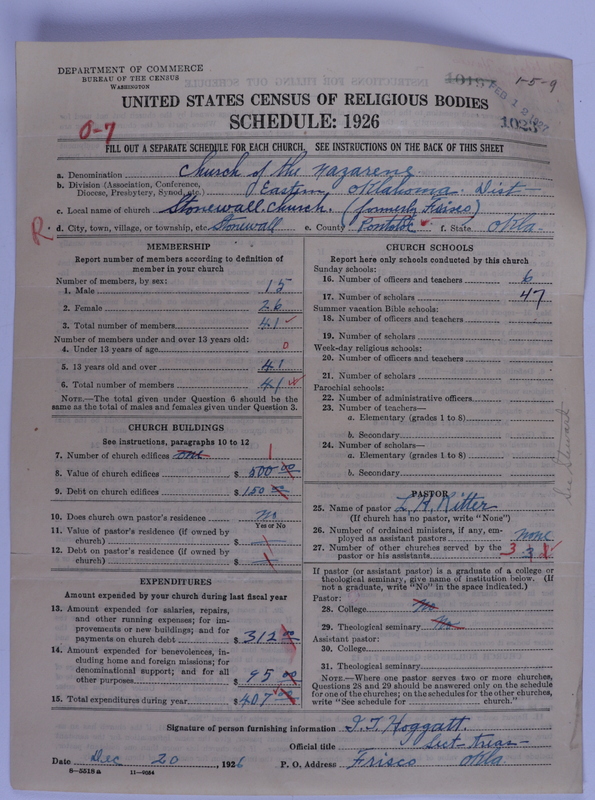 DEPARTMENT OF COMMERCE
BUREAU OF THE CENSUS
WASHINGTON
10157
1-5-9
FEB 12 1927
UNITED STATES CENSUS OF RELIGIOUS BODIES
SCHEDULE: 1926
0-7
FILL OUT A SEPARATE SCHEDULE FOR EACH CHURCH. SEE INSTRUCTIONS ON THE BACK OF THIS SHEET
a. Denomination Church of the Nazarene
b. Division (Association, Conference, Diocese, Presbytery, Synod, etc.) Eastern Oklahoma Dist-
c. Local name of church Stonewall Church. (formerly Frisco)
R d. City, town, village, or township, etc. Stonewall e. County Pontotoc f. State Okla-
MEMBERSHIP
Report number of members according to definition of
member in your church
Number of members, by sex:
1. Male 15
2. Female 26
3. Total number of members 41
Number of members under and over 13 years old:
4. Under 13 years of age 0
5. 13 years old and over 41
6. Total number of members 41
NOTE.—The total given under Question 6 should be
the same as the total of males and females given under Question 3.
CHURCH BUILDINGS
See instructions, paragraphs 10 to 12
7. Number of church edifices one 1
8. Value of church edifices $ 500 00
9. Debt on church edifices $ 150 00
10. Does church own pastor's residence No
Yes or No
11. Value of pastor's residence (if owned by
church) $
12. Debt on pastor's residence (if owned by
church) $
EXPENDITURES
Amount expended by your church during last fiscal year
13. Amount expended for salaries, repairs,
and other running expenses; for im-
provements or new buildings; and for
payments on church debt $ 312 00
14. Amount expended for benevolences, in-
cluding home and foreign missions; for
denominational support; and for all
other purposes $ 95 00
15. Total expenditures during year $ 407 00
CHURCH SCHOOLS
Report here only schools conducted by this church
Sunday schools:
16. Number of officers and teachers 6
17. Number of scholars 47
Summer vacation Bible schools:
18. Number of officers and teachers
19. Number of scholars
Week-day religious schools:
20. Number of officers and teachers
21. Number of scholars
Parochial schools:
22. Number of administrative officers
23. Number of teachers—
a. Elementary (grades 1 to 8)
b. Secondary
24. Number of scholars—
a. Elementary (grades 1 to 8)
b. Secondary
See Stewart
PASTOR
25. Name of pastor L. H. Ritter
(If church has no pastor, write "None")
26. Number of ordained ministers, if any, em-
ployed as assistant pastors none
27. Number of other churches served by the
pastor or his assistants 3 3
If pastor (or assistant pastor) is a graduate of a college or
theological seminary, give name of institution below. (If
not a graduate, write "No" in the space indicated.)
Pastor:
28. College No
29. Theological seminary No
Assistant pastor:
30. College
31. Theological seminary
NOTE.—Where one pastor serves two or more churches,
Questions 28 and 29 should be answered only on the schedule
for one of the churches; on the schedules for the other churches,
write "See schedule for church."
Signature of person furnishing information J. T. Hoggatt.
Official title Sect treas-
Date Dec 20, 1926 P. O. Address Frisco Okla
8-5518 a 11-9054